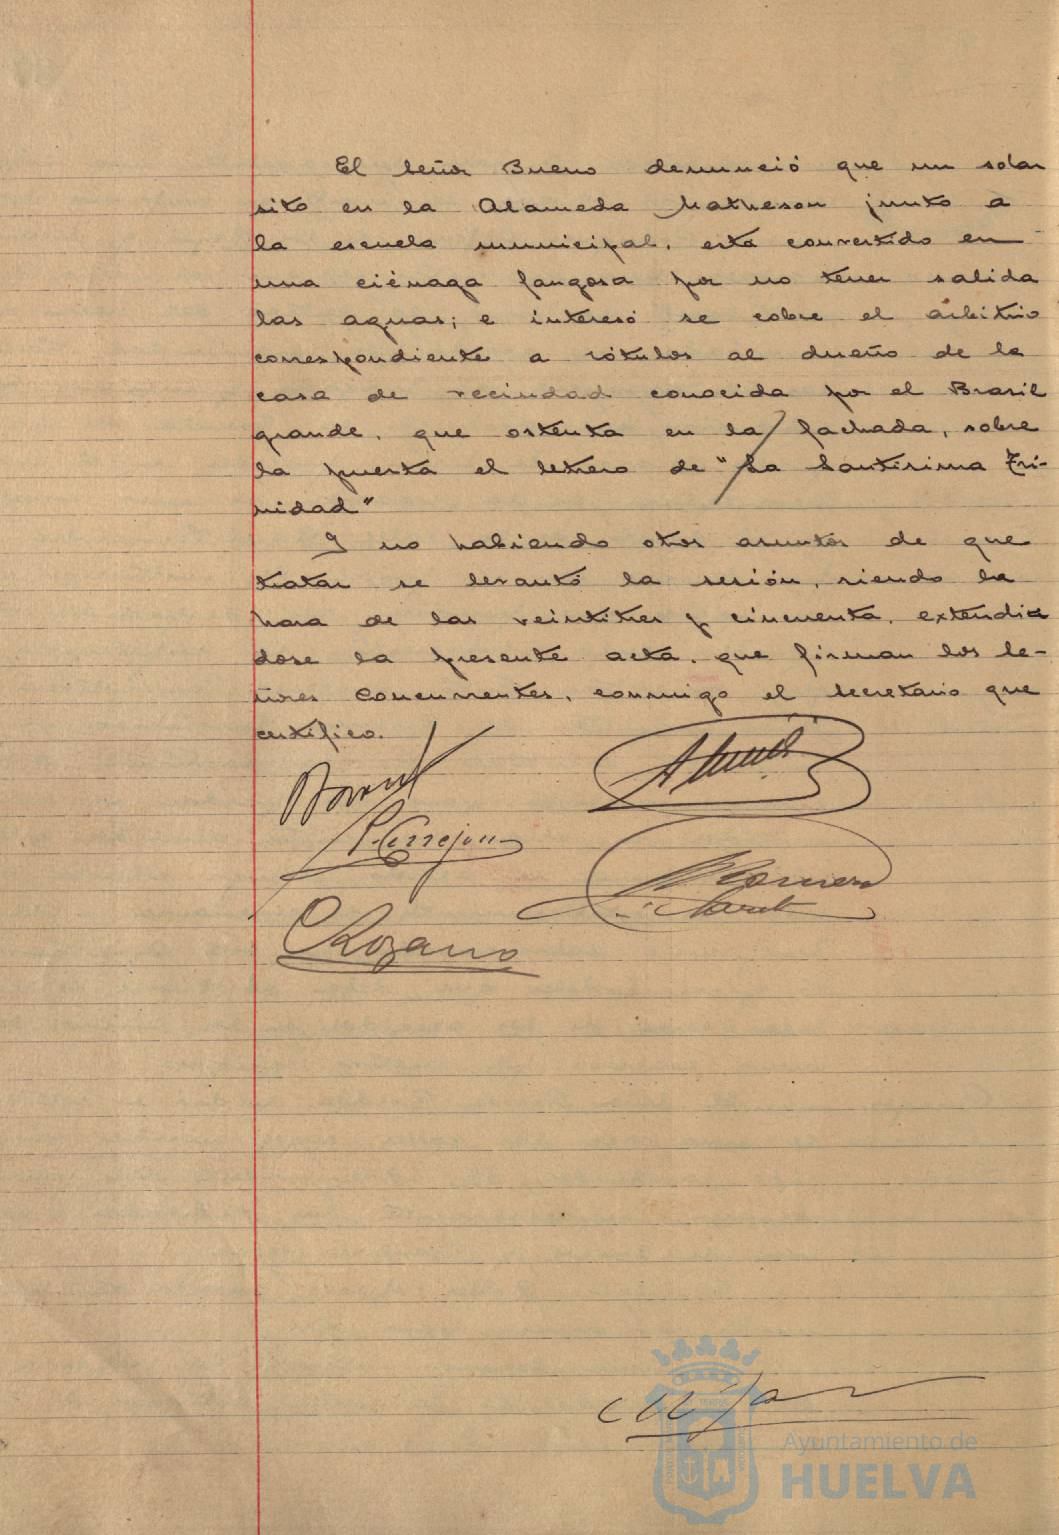 El señor Bueno denunció que un solar
sito en la Alameda Matheson junto a
la escuela municipal, está convertido en
una ciénaga fangosa por no tener salida
las aguas; e interesó se cobre el arbitrio
correspondiente a rótulos al dueño de la
casa de vecindad conocida por el Brasil
grande, que ostenta en la fachada, sobre
la puerta el letrero de "La Santísima Tri-
nidad"
Y no habiendo otros asuntos de que
tratar se levantó la sesión, siendo la
hora de las veintitres y cincuenta, extendien
dose la presente acta, que firman los se-
ñores concurrentes, conmigo el secretario que
certifico.
P. Cerrejon
Lozano
Ayuntamiento de
HUELVA